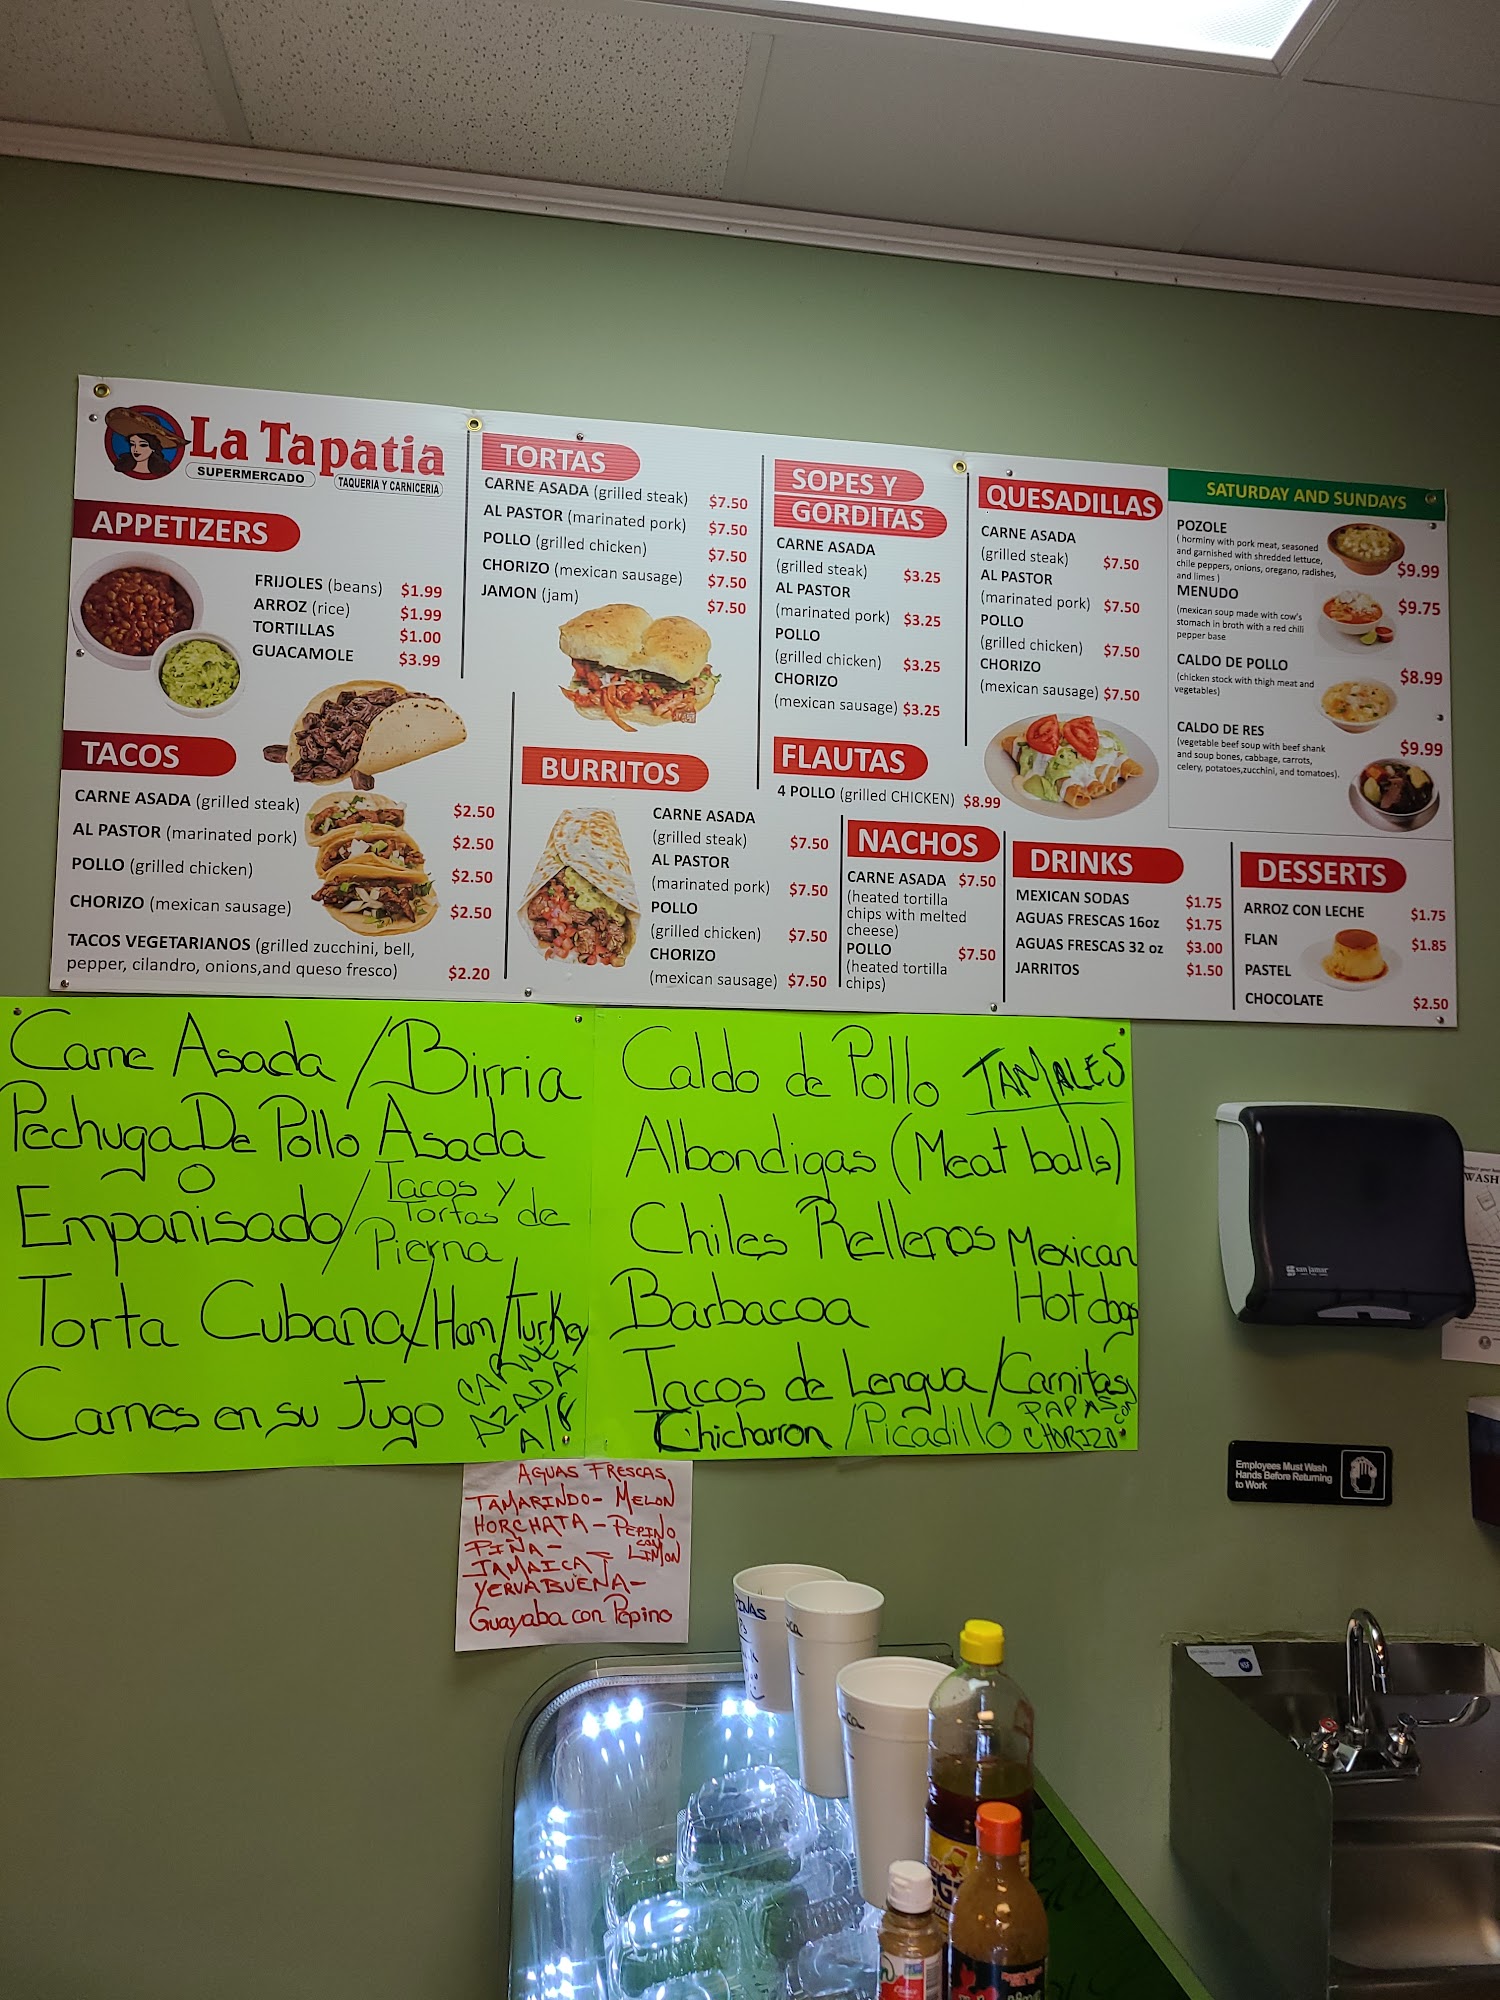 La Tapatia
SUPERMERCADO
TAQUERIA Y CARNICERIA
APPETIZERS
FRIJOLES (beans) $1.99
ARROZ (rice) $1.99
TORTILLAS $1.00
GUACAMOLE $3.99
TACOS
CARNE ASADA (grilled steak) $2.50
AL PASTOR (marinated pork) $2.50
POLLO (grilled chicken) $2.50
CHORIZO (mexican sausage) $2.50
TACOS VEGETARIANOS (grilled zucchini, bell,
pepper, cilandro, onions,and queso fresco) $2.20
TORTAS
CARNE ASADA (grilled steak) $7.50
AL PASTOR (marinated pork) $7.50
POLLO (grilled chicken) $7.50
CHORIZO (mexican sausage) $7.50
JAMON (jam) $7.50
BURRITOS
CARNE ASADA
(grilled steak) $7.50
AL PASTOR
(marinated pork) $7.50
POLLO
(grilled chicken) $7.50
CHORIZO
(mexican sausage) $7.50
SOPES Y
GORDITAS
CARNE ASADA
(grilled steak) $3.25
AL PASTOR
(marinated pork) $3.25
POLLO
(grilled chicken) $3.25
CHORIZO
(mexican sausage) $3.25
FLAUTAS
4 POLLO (grilled CHICKEN) $8.99
NACHOS
CARNE ASADA $7.50
(heated tortilla
chips with melted
cheese)
POLLO $7.50
(heated tortilla
chips)
QUESADILLAS
CARNE ASADA
(grilled steak) $7.50
AL PASTOR
(marinated pork) $7.50
POLLO
(grilled chicken) $7.50
CHORIZO
(mexican sausage) $7.50
DRINKS
MEXICAN SODAS $1.75
AGUAS FRESCAS 16oz $1.75
AGUAS FRESCAS 32 oz $3.00
JARRITOS $1.50
SATURDAY AND SUNDAYS
POZOLE
( horminy with pork meat, seasoned
and garnished with shredded lettuce,
chile peppers, onions, oregano, radishes,
and limes ) $9.99
MENUDO $9.75
(mexican soup made with cow's
stomach in broth with a red chili
pepper base
CALDO DE POLLO $8.99
(chicken stock with thigh meat and
vegetables)
CALDO DE RES $9.99
(vegetable beef soup with beef shank
and soup bones, cabbage, carrots,
celery, potatoes,zucchini, and tomatoes).
DESSERTS
ARROZ CON LECHE $1.75
FLAN $1.85
PASTEL
CHOCOLATE $2.50
Carne Asada / Birria
Pechuga De Pollo Asada
O
Empanisado / Tacos y
Tortas de
Pierna
Torta Cubana / Ham / Turkey
Carnes en su Jugo
CARNE
AZADA
Caldo de Pollo TAMALES
Albondigas (Meat balls)
Chiles Rellenos Mexican
Barbacoa Hot dogs
Tacos de Lengua / Carnitas
Chicharron / Picadillo PAPAS CON
CHORIZO
AGUAS FRESCAS
TAMARINDO - MELON
HORCHATA - PEPINO
CON
PIÑA - LIMON
JAMAICA
YERVABUENA -
Guayaba con Pepino
san jamar
WASH
Employees Must Wash
Hands Before Returning
to Work
NSF